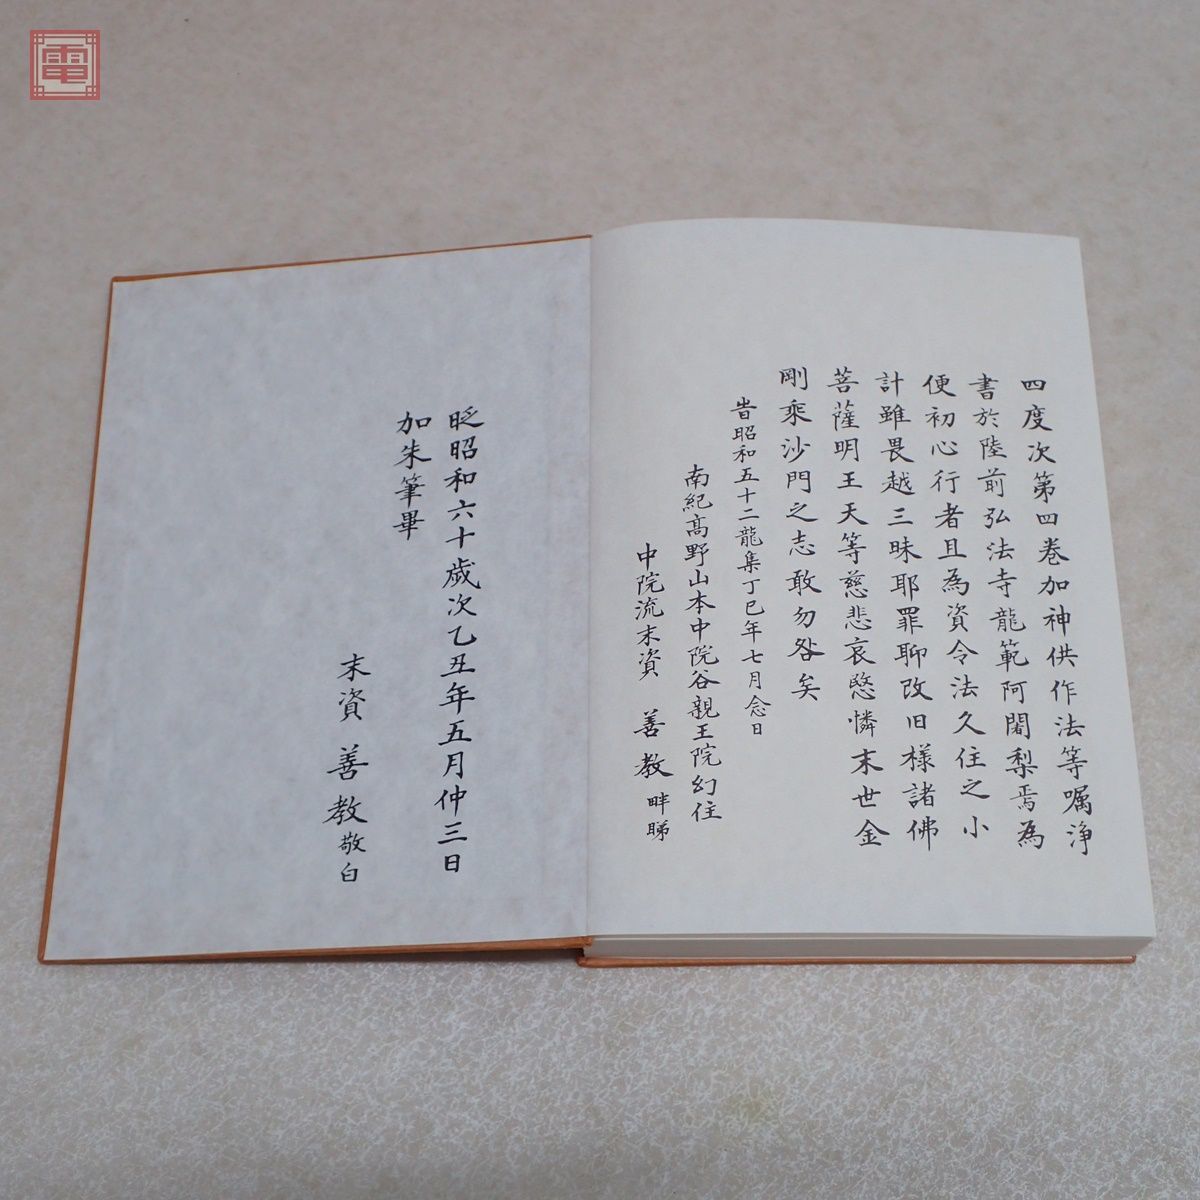 電
四度次第四巻加神供作法等嘱浄
書於陸前弘法寺龍範阿闍梨焉為
便初心行者且為資令法久住之小
計雖畏越三昧耶罪聊改旧様諸佛
菩薩明王天等慈悲哀愍憐末世金
剛乘沙門之志敢勿咎矣
旹昭和五十二龍集丁巳年七月念日
南紀髙野山本中院谷親王院幻住
中院流末資 善教
昭和六十歳次乙丑年五月仲三日
加朱筆畢
末資 善教敬白